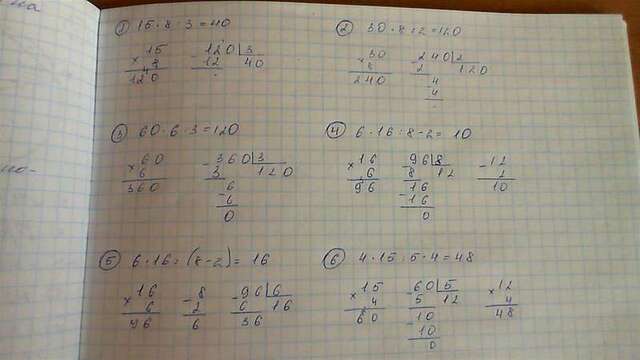 на
но-
① 15 · 8 : 3 = 40
× 15
8
120
- 120 | 3
12 40
② 30 · 8 : 2 = 120
× 30
8
240
- 240 | 2
2 120
4
4
③ 60 · 6 : 3 = 120
× 60
6
360
- 360 | 3
3 120
6
- 6
0
④ 6 · 16 : 8 - 2 = 10
× 16
6
96
- 96 | 8
8 12
16
- 16
0
- 12
2
10
⑤ 6 · 16 : (8 - 2) = 16
× 16
6
96
- 8
2
6
- 96 | 6
6 16
36
⑥ 4 · 15 : 5 · 4 = 48
× 15
4
60
- 60 | 5
5 12
- 10
10
0
× 12
4
48